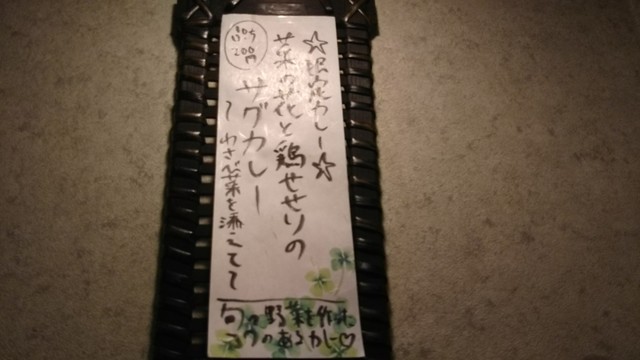 ☆限定カレー☆
菜の花と鶏せせりの
サグカレー
〜わさび菜を添えてて
200円
旬の野菜を作った
コクのあるカレー♡